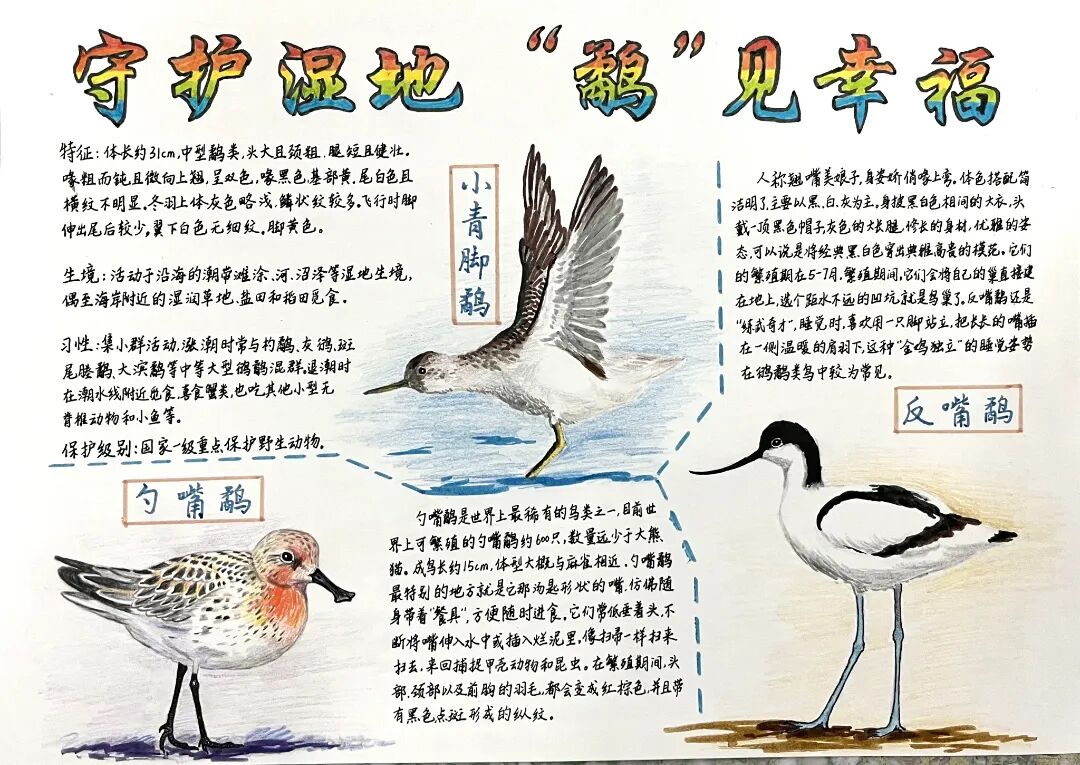 守护湿地 “鹬”见幸福
特征：体长约31cm，中型鹬类，头大且颈粗，腿短且健壮。
喙粗而钝且微向上翘，呈双色，喙黑色，基部黄，尾白色且
横纹不明显。冬羽上体灰色略浅，鳞状纹较多。飞行时脚
伸出尾后较少，翼下白色无细纹，脚黄色。
生境：活动于沿海的潮带滩涂、河、沼泽等湿地生境，
偶至海岸附近的湿润草地、盐田和稻田觅食。
习性：集小群活动，涨潮时常与杓鹬、灰鸻、斑
尾塍鹬、大滨鹬等中等大型鸻鹬混群。退潮时
在潮水线附近觅食，喜食蟹类，也吃其他小型无
脊椎动物和小鱼等。
保护级别：国家一级重点保护野生动物。
小青脚鹬
人称翘嘴美娘子，身姿娇俏喙上弯，体色搭配简
洁明了主要以黑、白、灰为主，身披黑白色相间的大衣，头
戴一顶黑色帽子灰色的大长腿，修长的身材，优雅的姿
态，可以说是将经典黑白色穿出典雅高贵的模范。它们
的繁殖期在5-7月，繁殖期间，它们会将自己的巢直接建
在地上，选个距水不远的凹坑就是鸟巢了。反嘴鹬还是
“练武奇才”，睡觉时，喜欢用一只脚站立，把长长的嘴插
在一侧温暖的肩羽下，这种“金鸡独立”的睡觉姿势
在鸻鹬类鸟中较为常见。
反嘴鹬
勺嘴鹬
勺嘴鹬是世界上最稀有的鸟类之一，目前世
界上可繁殖的勺嘴鹬约600只，数量远少于大熊
猫。成鸟长约15cm，体型大概与麻雀相近，勺嘴鹬
最特别的地方就是它那汤匙形状的嘴，仿佛随
身带着“餐具”，方便随时进食。它们常低垂着头，不
断将嘴伸入水中或插入烂泥里，像扫帚一样扫来
扫去，来回捕捉甲壳动物和昆虫。在繁殖期间，头
部、颈部以及前胸的羽毛，都会变成红棕色，并且带
有黑色点斑形成的纵纹。